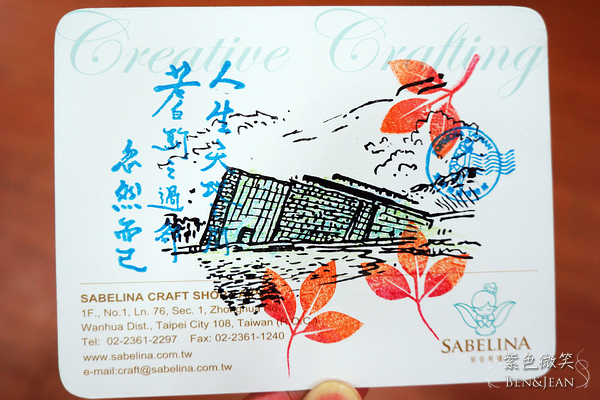 Creative Crafting
人生天地之間
若白駒之過郤
忽然而已
SABELINA CRAFT SHO
1F., No.1, Ln. 76, Sec. 1, Zhonghua
Wanhua Dist., Taipei City 108, Taiwan (R.O.C.)
Tel: 02-2361-2297 Fax: 02-2361-1240
www.sabelina.com.tw
e-mail:craft@sabelina.com.tw
SABELINA
紫色微笑
BEN&JEAN